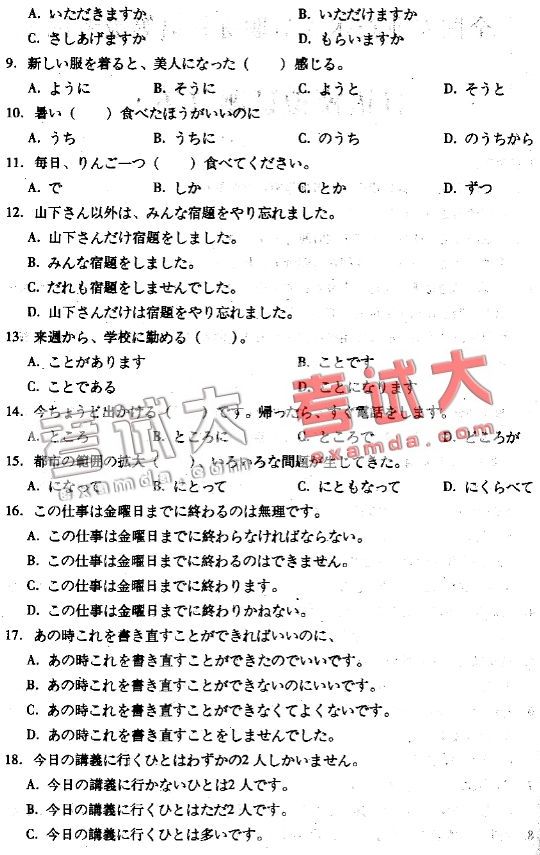 A. いただきますか B. いただけますか
C. さしあげますか D. もらいますか
9. 新しい服を着ると、美人になった（　　）感じる。
A. ように B. そうに C. ようと D. そうと
10. 暑い（　　）食べたほうがいいのに
A. うち B. うちに C. のうち D. のうちから
11. 毎日、りんご一つ（　　）食べてください。
A. で B. しか C. とか D. ずつ
12. 山下さん以外は、みんな宿題をやり忘れました。
A. 山下さんだけ宿題をしました。
B. みんな宿題をしました。
C. だれも宿題をしませんでした。
D. 山下さんだけは宿題をやり忘れました。
13. 来週から、学校に勤める（　　）。
A. ことがあります B. ことです
C. ことである D. ことになります
14. 今ちょうど出かける（　　）です。帰ったら、すぐ電話をします。
A. ところ B. ところに C. ところで D. ところが
15. 都市の範囲の拡大（　　）、いろいろな問題が生じてきた。
A. になって B. にとって C. にともなって D. にくらべて
16. この仕事は金曜日までに終わるのは無理です。
A. この仕事は金曜日までに終わらなければならない。
B. この仕事は金曜日までに終わるのはできません。
C. この仕事は金曜日までに終わります。
D. この仕事は金曜日までに終わりかねない。
17. あの時これを書き直すことができればいいのに、
A. あの時これを書き直すことができたのでいいです。
B. あの時これを書き直すことができないのにいいです。
C. あの時これを書き直すことができなくてよくないです。
D. あの時これを書き直すことをしませんでした。
18. 今日の講義に行くひとはわずかの2人しかいません。
A. 今日の講義に行かないひとは2人です。
B. 今日の講義に行くひとはただ2人です。
C. 今日の講義に行くひとは多いです。
8
考试大
examda.com
考试大
examda.com